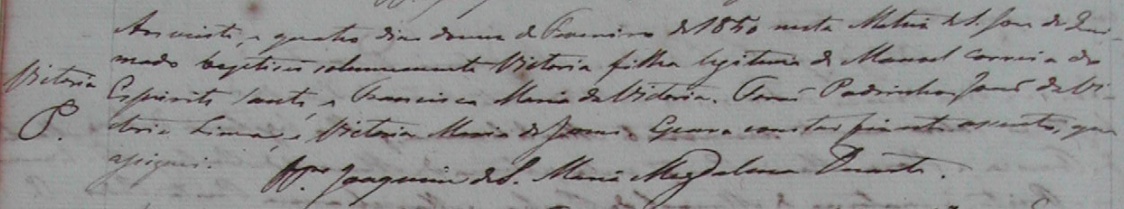 Aos vinte, e quatro dias do mez de Fevereiro de 1850 nesta Matriz de S. José do Quei-
mado baptisei solemnemente Victoria filha legitima de Manoel Correia do
Victoria Espirito Santo, e Francisca Maria da Victoria. Padrinhos José da Vi-
P. ctoria Lima, e Victoria Maria de Jesus. E para constar fiz este assento, que
assignei.
Fr. Joaquim de S. Maria Magdalena Duarte.